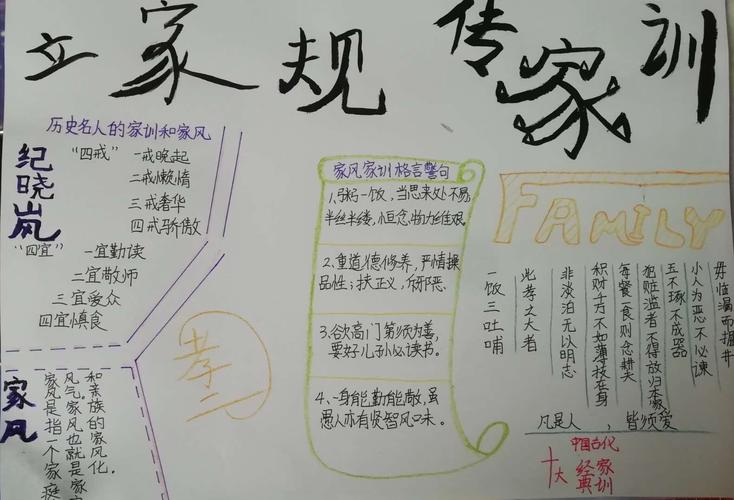 立家规 传家训
历史名人的家训和家风
纪晓岚
"四戒" 一戒晚起
二戒懒惰
三戒奢华
四戒骄傲
"四宜" 一宜勤读
二宜敬师
三宜爱众
四宜慎食
家风
和亲族的家风化。
风气,家风也就是家
家风是指一个家庭
孝
家风家训格言警句
1、一粥一饭,当思来处不易
半丝半缕,恒念物力维艰。
2、重道德修养,严情操
品性;扶正义,斥邪恶.
3、欲高门第须为善,
要好儿孙必读书。
4、一身能勤能敬,虽
愚人亦有贤智风味.
FAMILY
毋临渴而掘井
小人为恶不必谏
五不琢不成器
犯赃滥者不得放归本家
每餐一食则念耕夫
积财千万不如薄技在身
非淡泊无以明志
此孝之大者
一饭三吐哺
凡是人,皆须爱
中国古代
十大经典家训